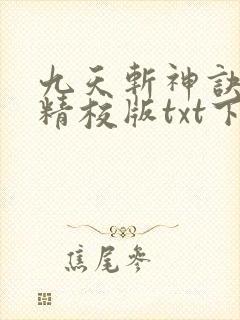 九天斬神訣
精校版txt下
焦尾參